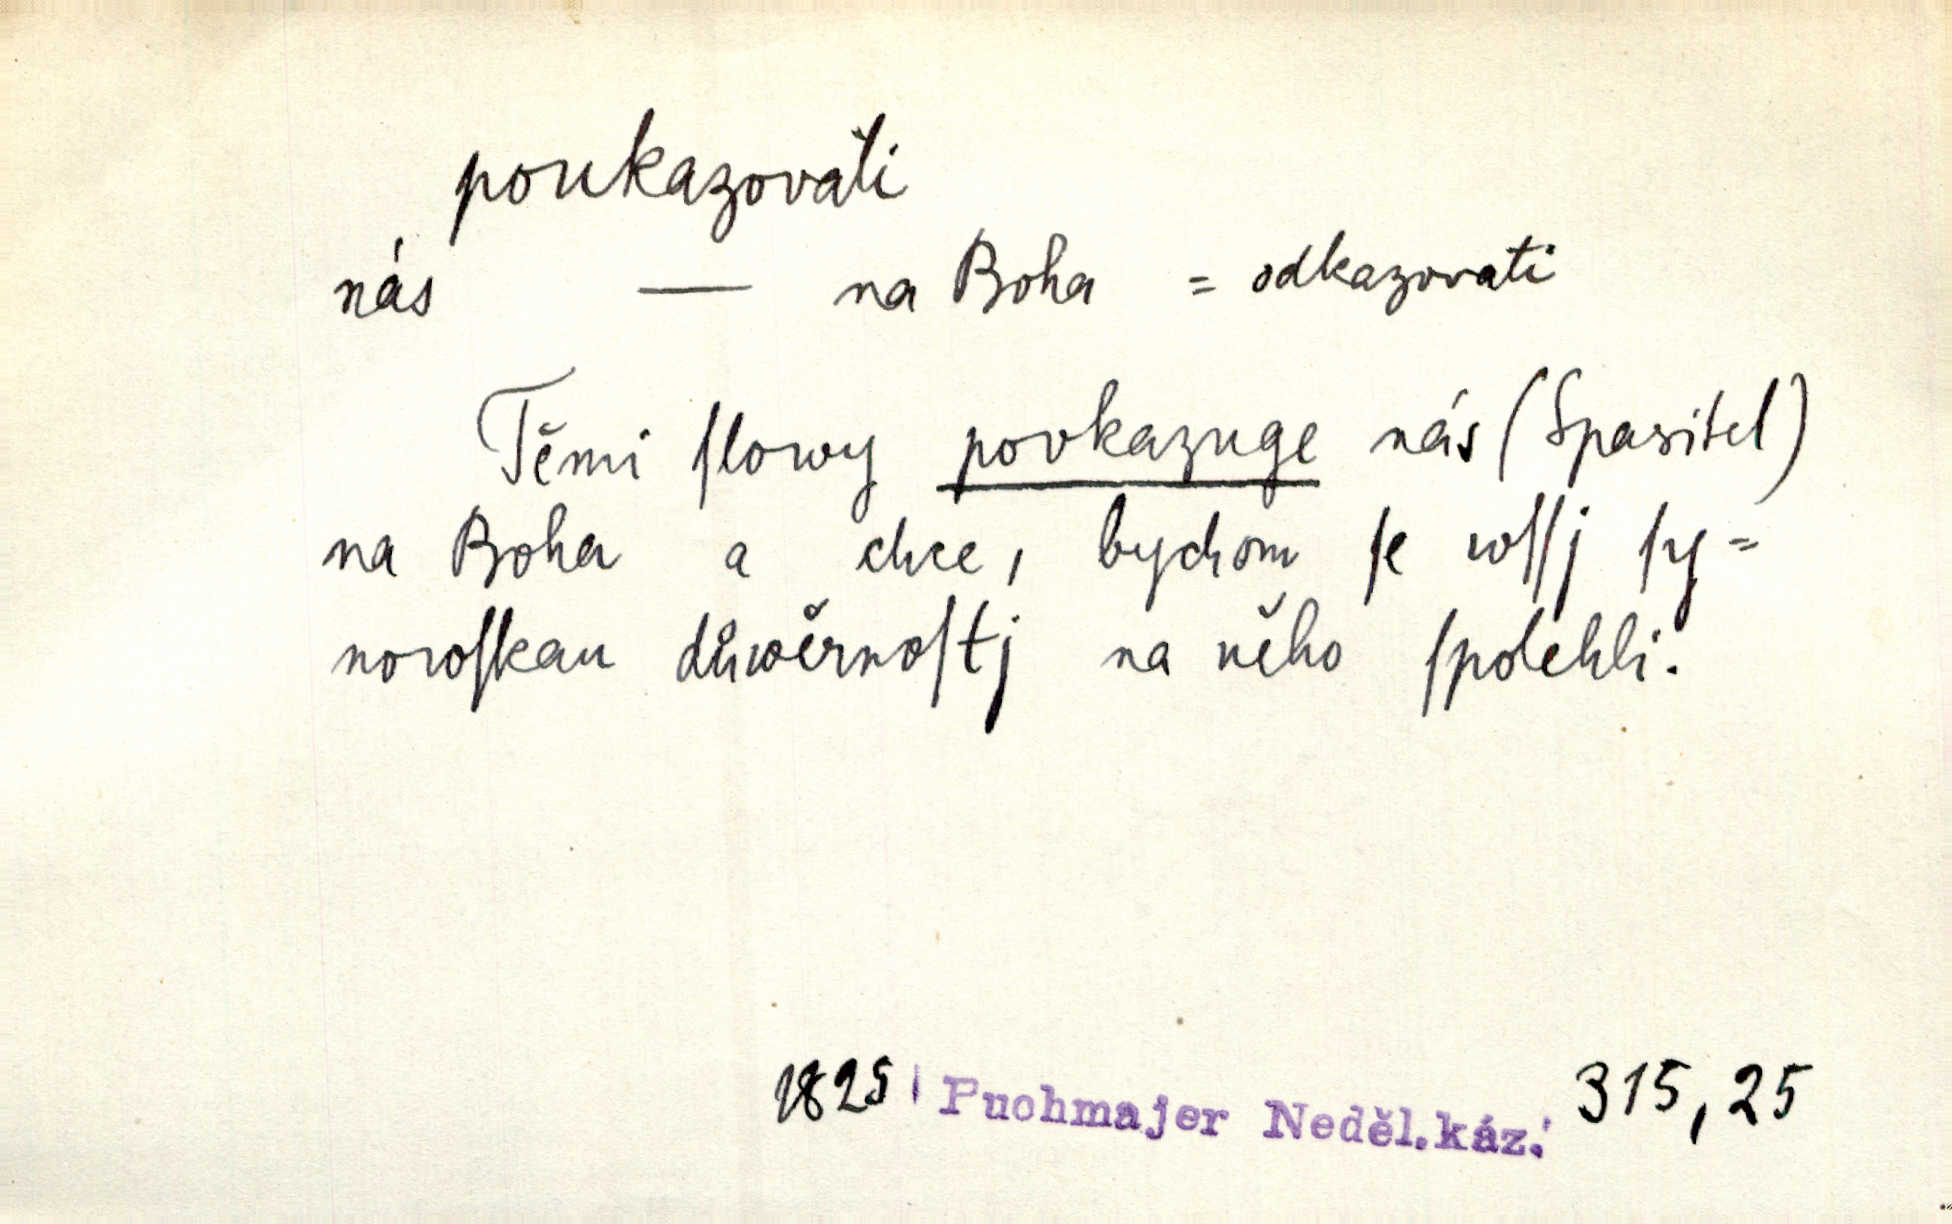 poukazovati
nás — na Boha = odkazovati
Těmi ſlowy poukazuge nás (Spasitel)
na Boha a chce, bychom ſe wſſj ſy=
nowſkau důwěrnoſtj na něho ſpolehli.
1825 Puchmajer Neděl.káz. 315,25